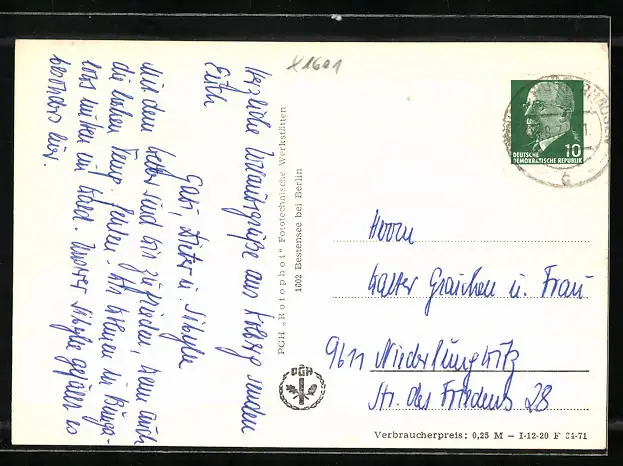 X1601
Herzliche Urlaubsgrüße aus Kolberg senden
Euch
Gabi, Dieter u. Sibylle
Mit dem Wetter sind wir zufrieden, wenn auch
die hohen Temp. fehlen. Wir wohnen in Bunga-
lows mitten im Wald. Unserer Sibylle gefällt es
besonders hier.
PGH „Rotophot“ Fototechnische Werkstätten
1602 Bestensee bei Berlin
PGH
DEUTSCHE 10
DEMOKRATISCHE REPUBLIK
Herrn
Walter Graichen u. Frau
9611 Niederlungwitz
Str. des Friedens 28
Verbraucherpreis: 0,25 M – I-12-20 F 34-71